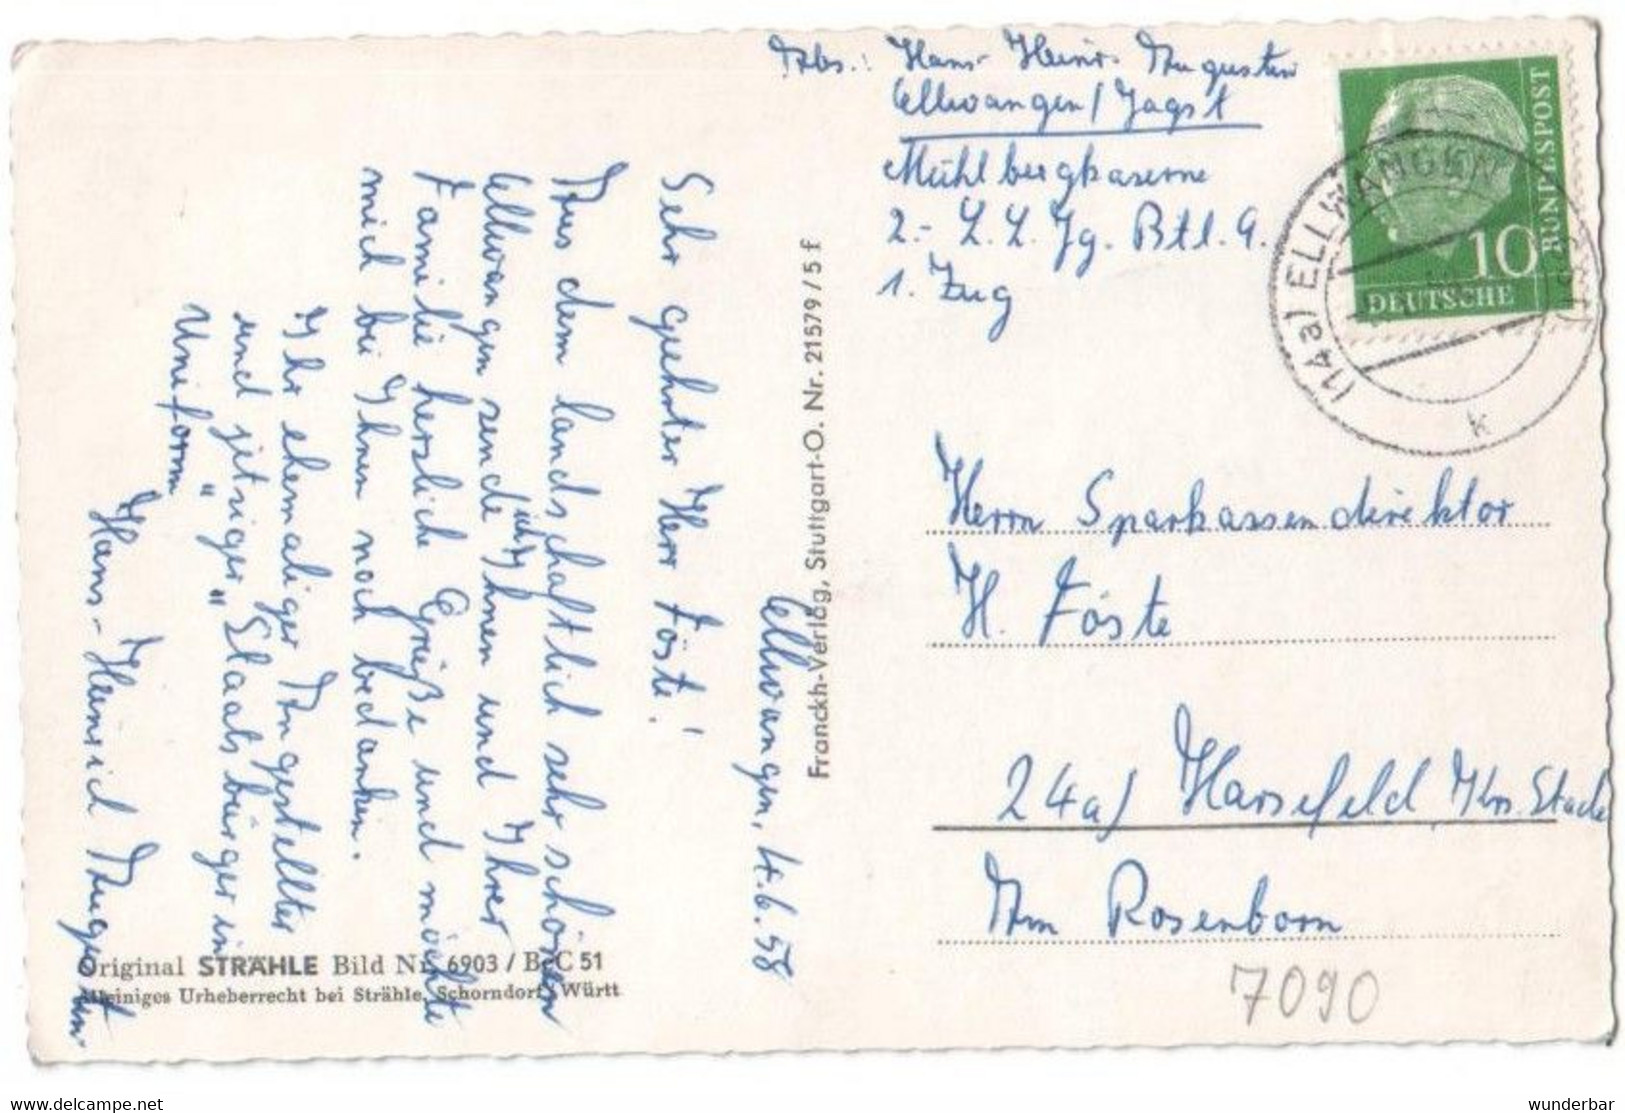 Abs.: Hans-Heinr. Augustin
Ellwangen/Jagst
Mühlbergkaserne
2.- L.L.Jg. Btl. 9.
1. Zug
(14a) ELLWANGEN
k
10
DEUTSCHE
BUNDESPOST
Ellwangen, 4.6.58
Sehr geehrter Herr Föste!
Aus dem landschaftlich sehr schönen
Ellwangen sende ich Ihnen und Ihrer
Familie herzliche Grüße und möchte
mich bei Ihnen noch bedanken.
Ihr ehemaliger Angestellter
und jetziger „Staatsbürger in
Uniform"
Hans-Heinrich Augustin
Franckh-Verlag, Stuttgart-O. Nr. 21579/5 f
Herrn Sparkassendirektor
H. Föste
24a) Harsefeld, Krs. Stade
Am Rosenborn
7090
Original STRÄHLE Bild Nr. 6903 / B C 51
Alleiniges Urheberrecht bei Strähle, Schorndorf/Württ
www.delcampe.net
wunderbar